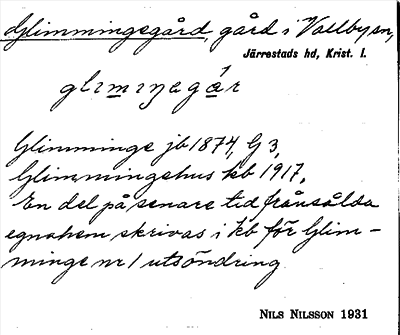 Glimmingegård, gård i Vallby sn,
Järrestads hd, Krist. l.
glimiŋegår
Glimminge jb 1874, G 3,
Glimmingehus kb 1917.
En del på senare tid frånsålda
egnahem skrivas i kb för Glim-
minge nr 1 utsöndring
NILS NILSSON 1931